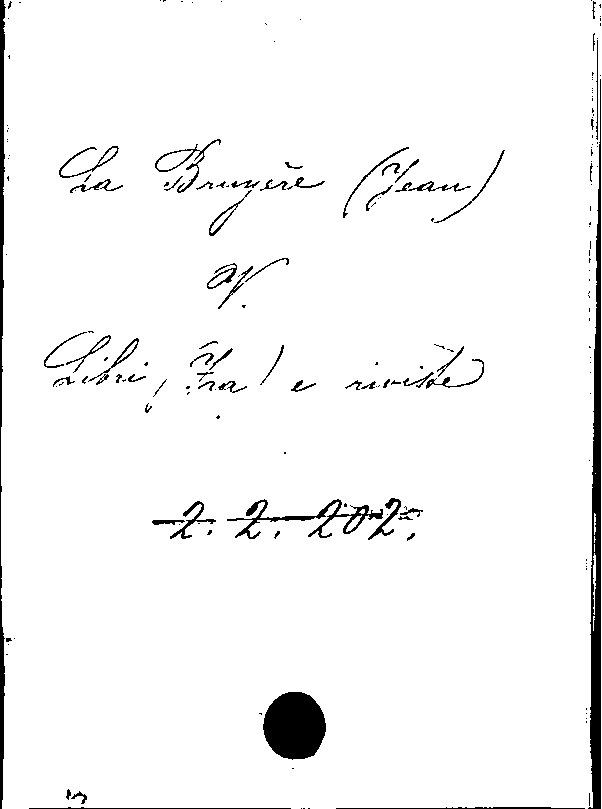 La Bruyère (Jean)
V.
Libri, (Fra) e riviste
2. 2. 202.